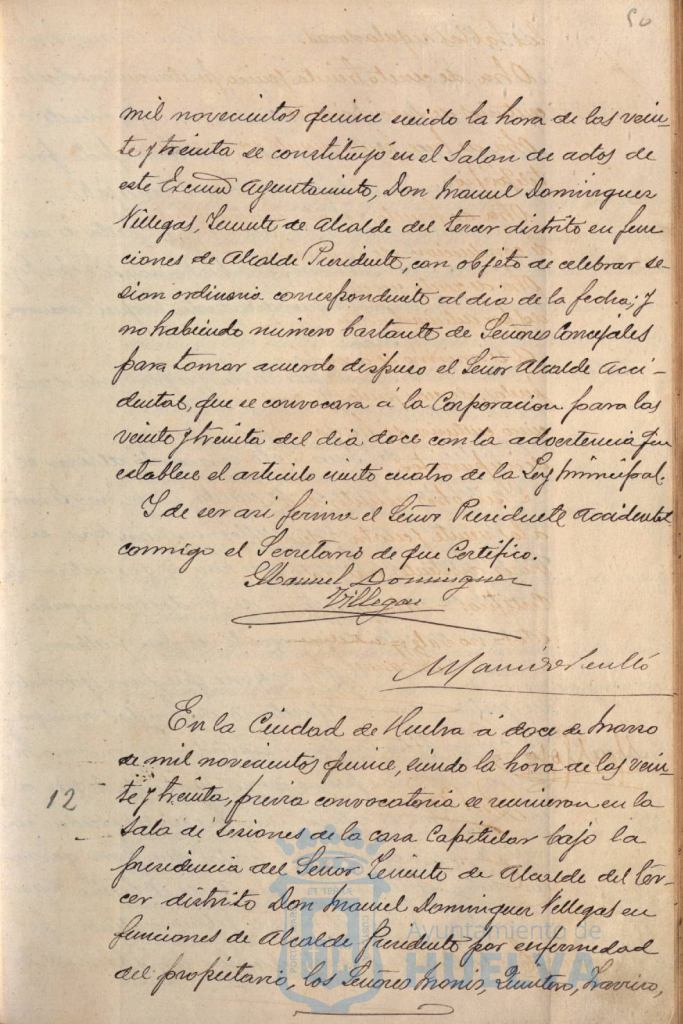 50
mil novecientos quince siendo la hora de las vein-
te y treinta se constituyó en el Salon de actos de
este Excmo Ayuntamiento, Don Manuel Dominguez
Villegas, Teniente de Alcalde del tercer distrito en fun
ciones de Alcalde Presidente, con objeto de celebrar se-
sion ordinaria correspondiente al dia de la fecha; y
no habiendo número bastante de Señores Concejales
para tomar acuerdo dispuso el Señor Alcalde Acci-
dental, que se convocara á la Corporacion para las
veinte y treinta del dia doce con la advertencia que
establece el articulo ciento cuatro de la Ley Municipal.
Y de ser asi firma el Señor Presidente Accidental
conmigo el Secretario de que Certifico.
Manuel Dominguez
Villegas
En la Ciudad de Huelva á doce de Marzo
de mil novecientos quince, siendo la hora de las vein-
12
te y treinta, previa convocatoria se reunieron en la
Sala de Sesiones de la casa Capitular bajo la
presidencia del Señor Teniente de Alcalde del ter-
cer distrito Don Manuel Dominguez Villegas en
funciones de Alcalde Presidente por enfermedad
del propietario, los Señores Monis, Quintero,
Ayuntamiento de
HUELVA